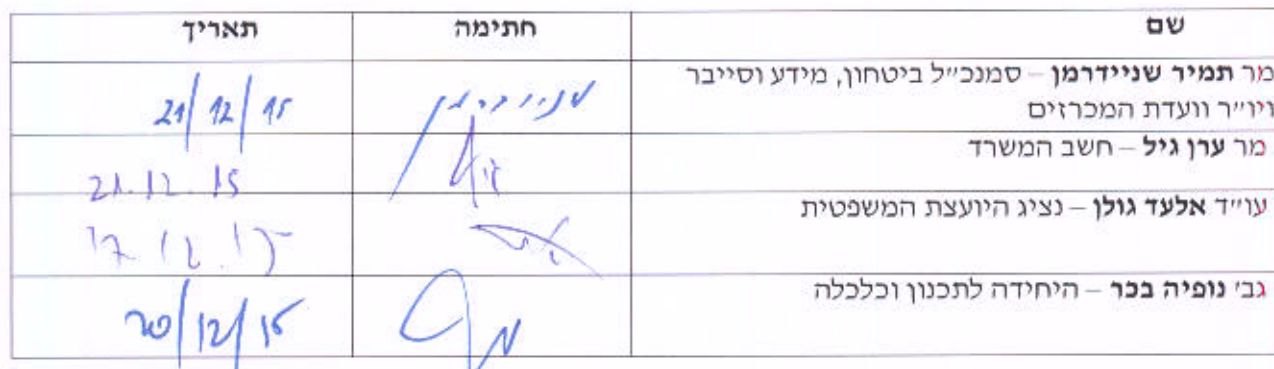 שם חתימה תאריך
מר תמיר שניידרמן – סמנכ״ל ביטחון, מידע וסייבר
ויו״ר וועדת המכרזים שניידרמן 21/12/15
מר ערן גיל – חשב המשרד 21.12.15
עו״ד אלעד גולן – נציג היועצת המשפטית 17.12.15
גב׳ נופיה בכר – היחידה לתכנון וכלכלה 20/12/15